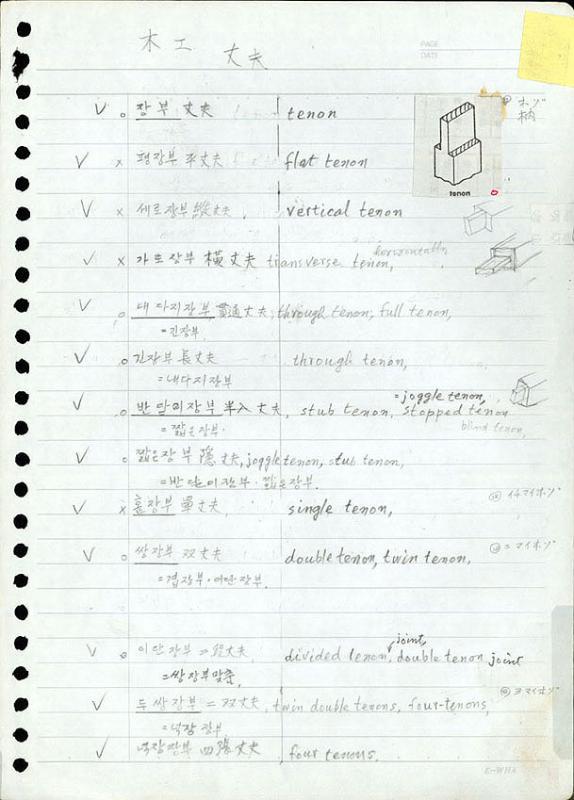 木工 丈夫
PAGE
DATE
✓ o 장부 丈夫 tenon
ホゾ
枘
tenon
✓ x 평장부 平丈夫 flat tenon
✓ x 세로장부 縱丈夫, vertical tenon
✓ x 가로장부 橫丈夫 transverse tenon,
✓ o 내다지장부 貫通丈夫, through tenon, full tenon,
=긴장부.
✓ o 긴장부 長丈夫 through tenon,
=내다지장부
=joggle tenon,
✓ o 반다지장부 半入丈夫, stub tenon, stopped tenon
=짧은장부. blind tenon,
✓ o 짧은장부 隱丈夫, joggle tenon, stub tenon,
=반다지장부·짧은장부.
✓ x 홑장부 單丈夫, single tenon, イチマイホゾ
✓ o 쌍장부 双丈夫 double tenon, twin tenon, 二マイホゾ
=겹장부·이단장부.
joint,
o 이단장부 = 二段丈夫, divided tenon, double tenon joint
=쌍장부맞춤,
✓ 두쌍장부 = 双丈夫, twin double tenons, four-tenons, ヨマイホゾ
=넉장장부
✓ 넉장장부 四隊丈夫, four tenons.